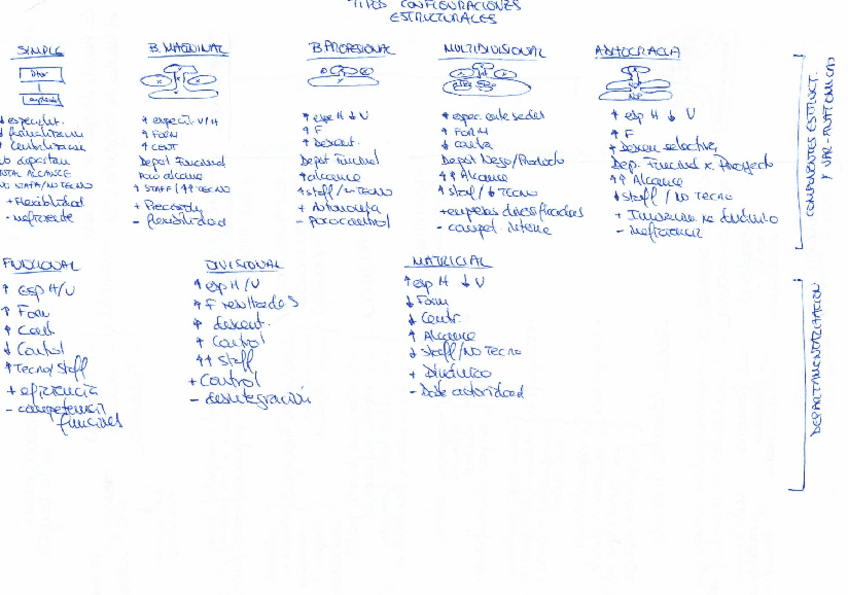 TIPOS CONFIGURACIONES
ESTRUCTURALES
SIMPLE
↓ especialit.
↓ formalización
↑ centralización
NO STAFF/NO TECNO
+ Flexibilidad
- ineficiente
B. MAQUINAL
↑ especil. V/H
↑ FORM
↑ CENT
Depat Funcional
Poco alcance
↑ STAFF / ↑↑ TECNO
+ Precisión
- flexibilidad
B. PROFESIONAL
↑ espe H ↓ V
↑ F
↑ Descent.
Depat Funcional
↑ alcance
↑ staff / no TECNO
+ Autonomía
- Poco control
MULTIDIVISIONAL
↑ espec. entre sedes
↑ FORM
↓ centra
Depat Nego/Producto
↑↑ Alcance
↑ staff / ↓ TECNO
+ empresas diversificadas
- compet. interna
ADHOCRACIA
↑ esp H ↓ V
↑ F
↑ Descen selectiva
Dep. Funcional x Proyecto
↑↑ Alcance
↓ staff / NO TECNO
- ineficiencia
COMPONENTES ESTRUCT.
FUNCIONAL
↑ ESP H/V
↑ Form
↑ Cent
↓ Control
↑ Tecno/Staff
+ eficiencia
- competencia
funciones
DIVISIONAL
↑ esp H/V
↑ F resultados
↑ descent.
↑ Control
↑↑ Staff
+ Control
- desintegración
MATRICIAL
↑ esp H ↓ V
↓ Form
↓ Centr.
↑ Alcance
↓ staff/NO TECNO
+ Dinámico
- Doble autoridad
DEPARTAMENTALIZACION